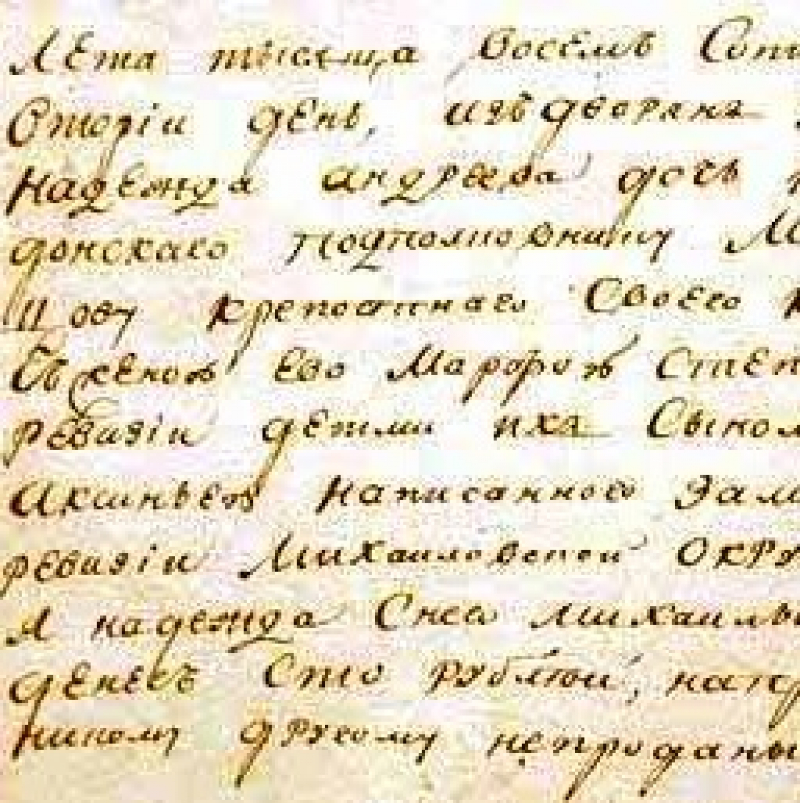 Лета тысеща восемъ Сотъ
Вторiи день, изъ дворянъ
Надежда андреева дочь
донскаго подполковнику М
шову крепостнаго Своего
Съ женою ево Марфою Степ
ревизiи детми ихъ Сыном
Аксиньею написанного
ревизiи Михаиловской окру
я надежда Снего михаилы
денегъ Сто рублей, напр
никому другому непроданы